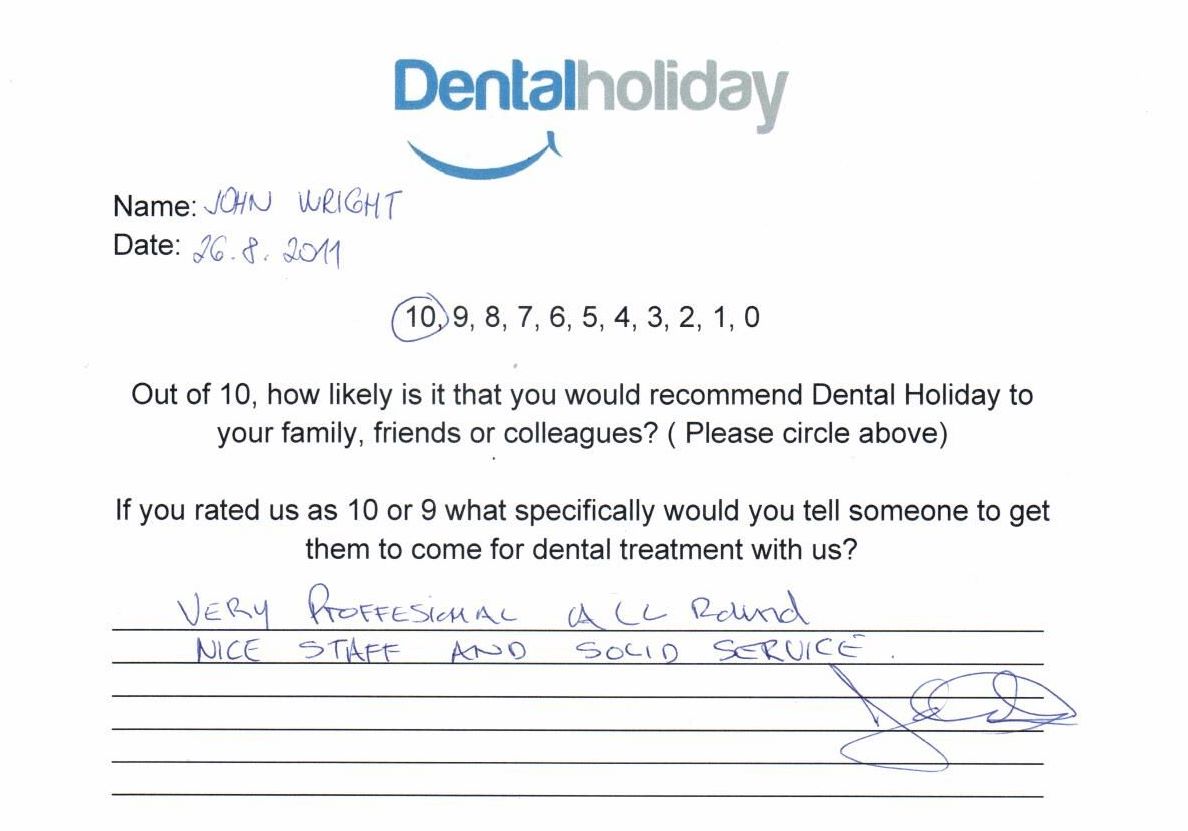 Dentalholiday
Name: JOHN WRIGHT
Date: 26.8.2011
10, 9, 8, 7, 6, 5, 4, 3, 2, 1, 0
Out of 10, how likely is it that you would recommend Dental Holiday to
your family, friends or colleagues? ( Please circle above)
If you rated us as 10 or 9 what specifically would you tell someone to get
them to come for dental treatment with us?
VERY PROFFESIONAL ALL Round
NICE STAFF AND SOLID SERVICE.